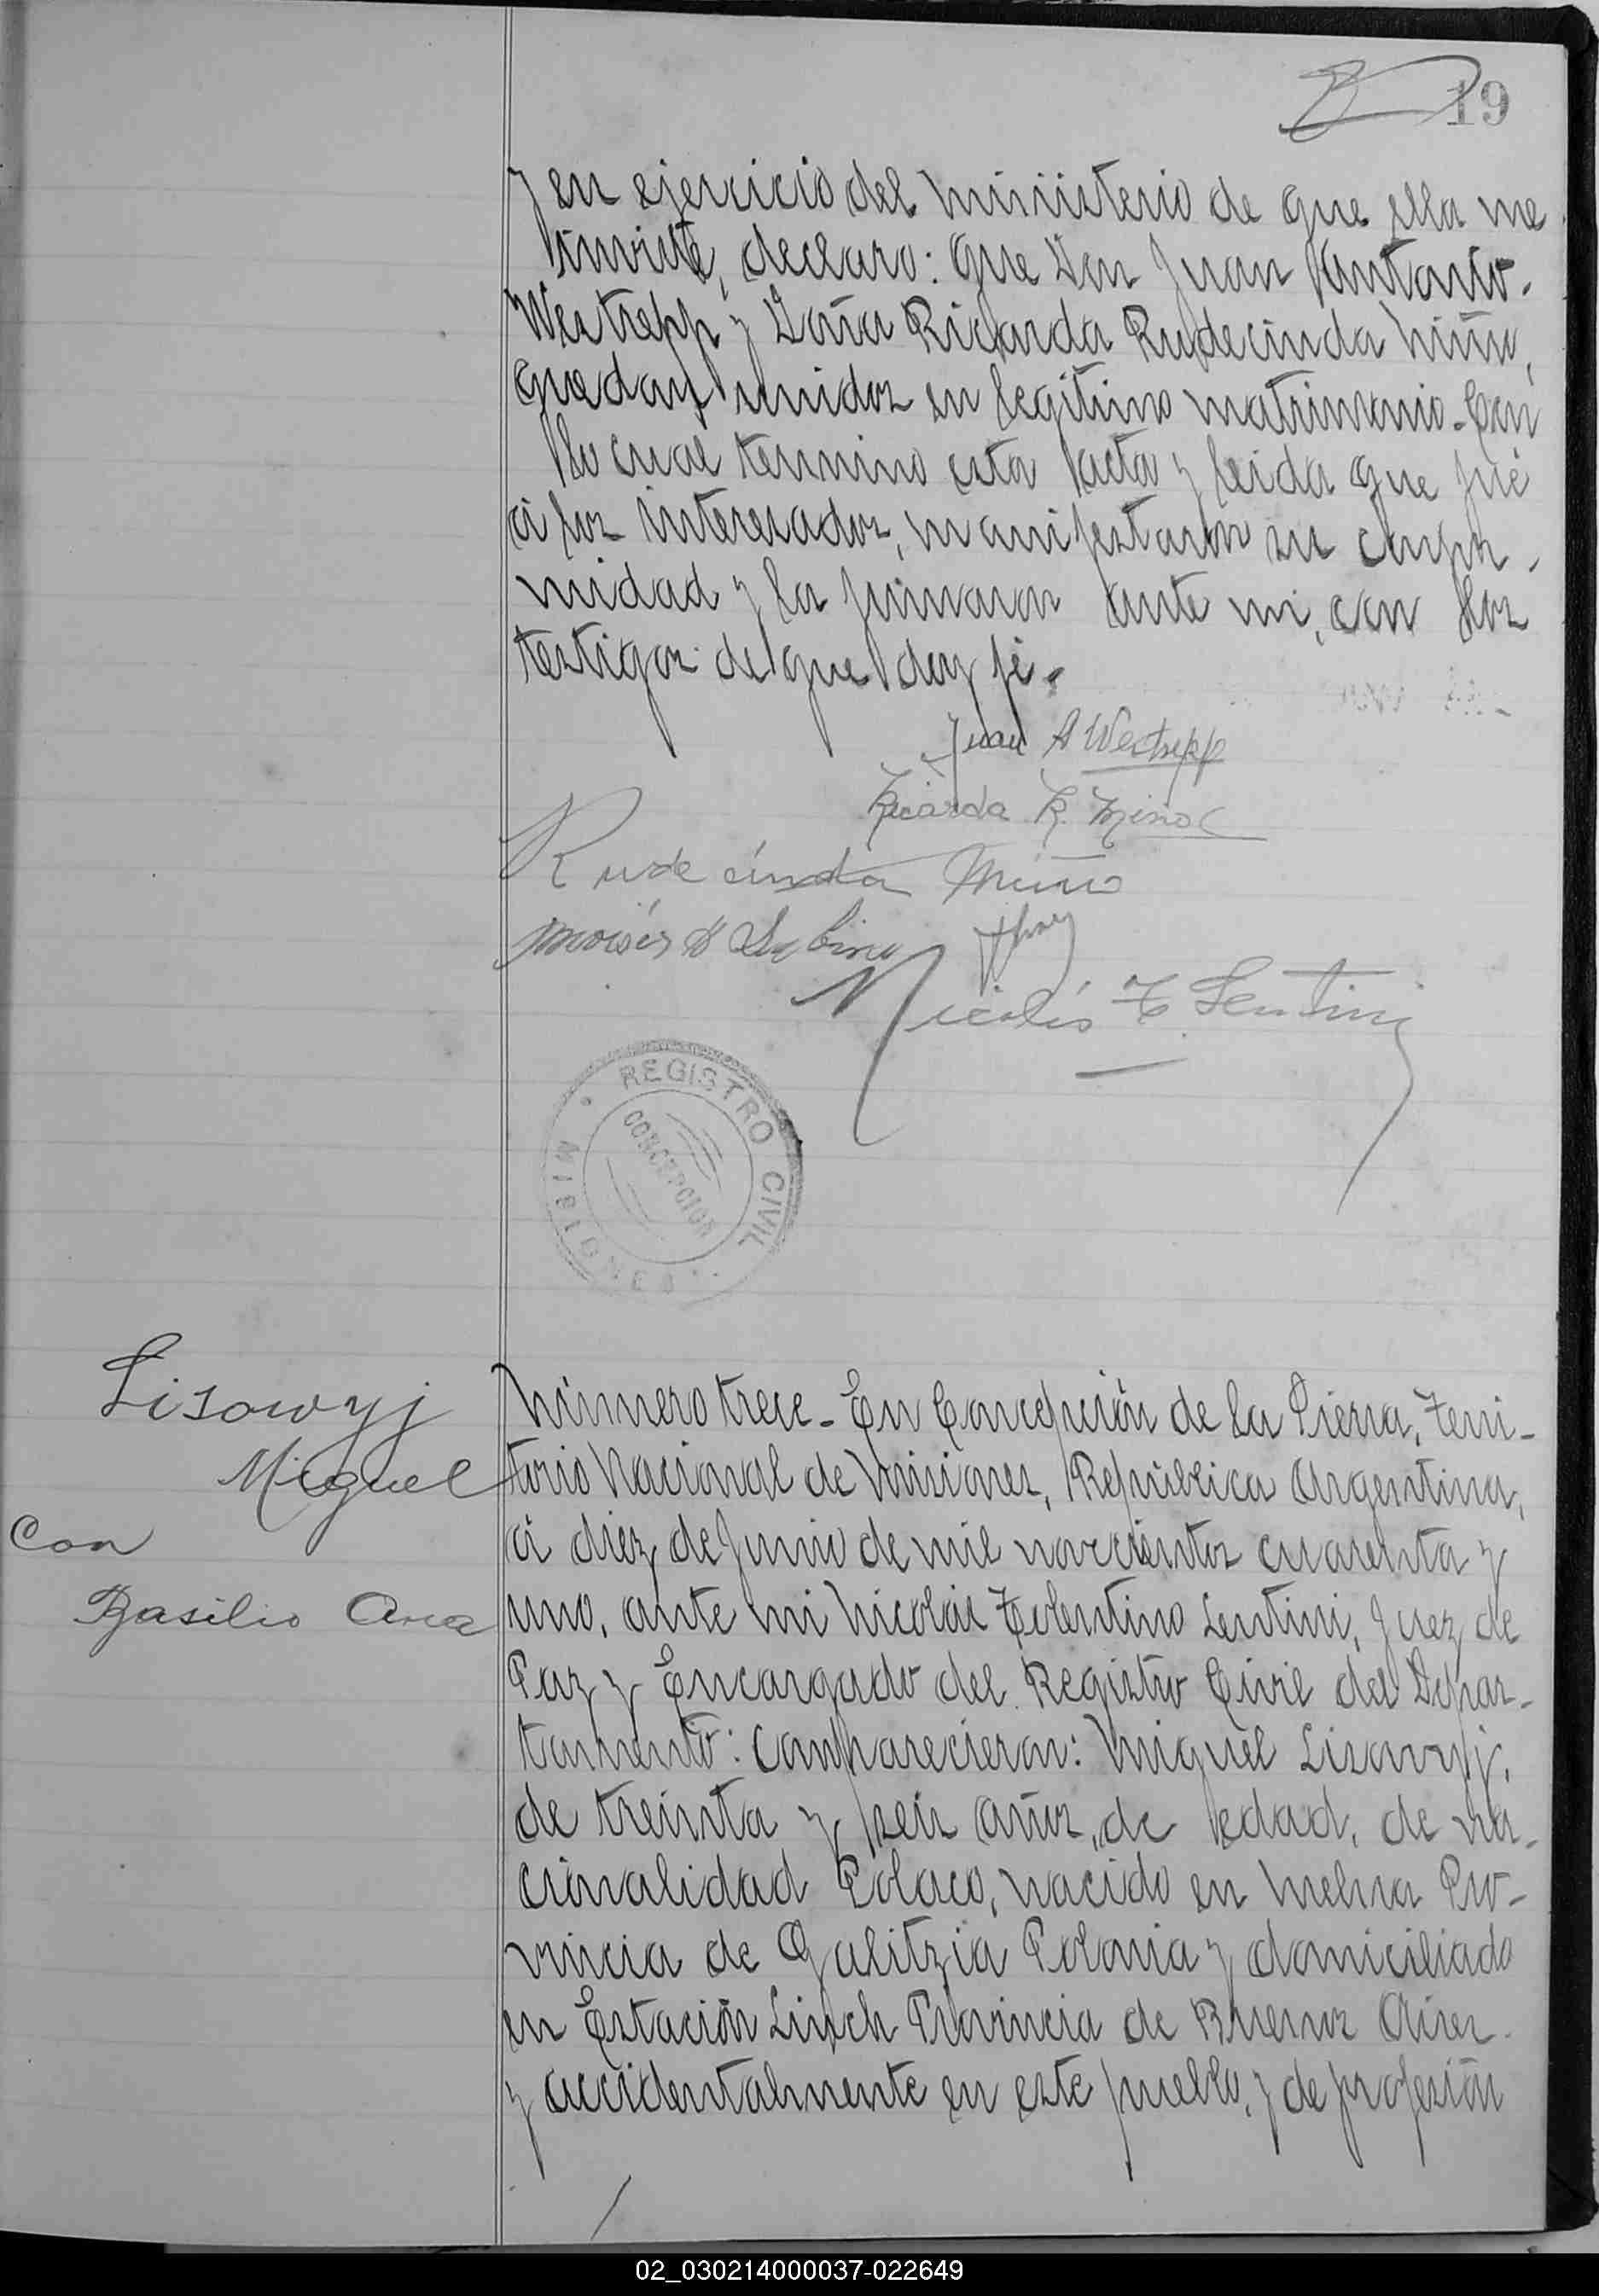 19
y en ejercicio del ministerio de que ella me
inviste, declaro: Que Don Juan Antonio
Westrepp y Doña Ricarda Rudecinda Miño,
quedan unidos en legítimo matrimonio.- Con
lo cual termino esta acta y leida que fué
á los interesados, manifestaron su confor-
midad y la firmaron ante mi, con los
testigos de que doy fé.
Juan A Westrepp
Ricarda R. Miño
Rudecinda Miño
Moisés
Nicolás T. Lentini
REGISTRO CIVIL
CONCEPCION
MISIONES
Lisowyj
Miguel
Con
Basilio Ana
Número trece - En Concepción de la Sierra, Terri-
torio Nacional de Misiones, República Argentina,
á diez de Junio de mil novecientos cuarenta y
uno, ante mi Nicolás Tolentino Lentini, Juez de
Paz y Encargado del Registro Civil del Depar-
tamento: Comparecieron: Miguel Lisowyj,
de treinta y seis años, de edad, de na-
cionalidad Polaco, nacido en Melna Pro-
vincia de Galitzia Polonia y domiciliado
en Estación Linch Provincia de Buenos Aires
y accidentalmente en este pueblo, y de profesión
02_030214000037-022649